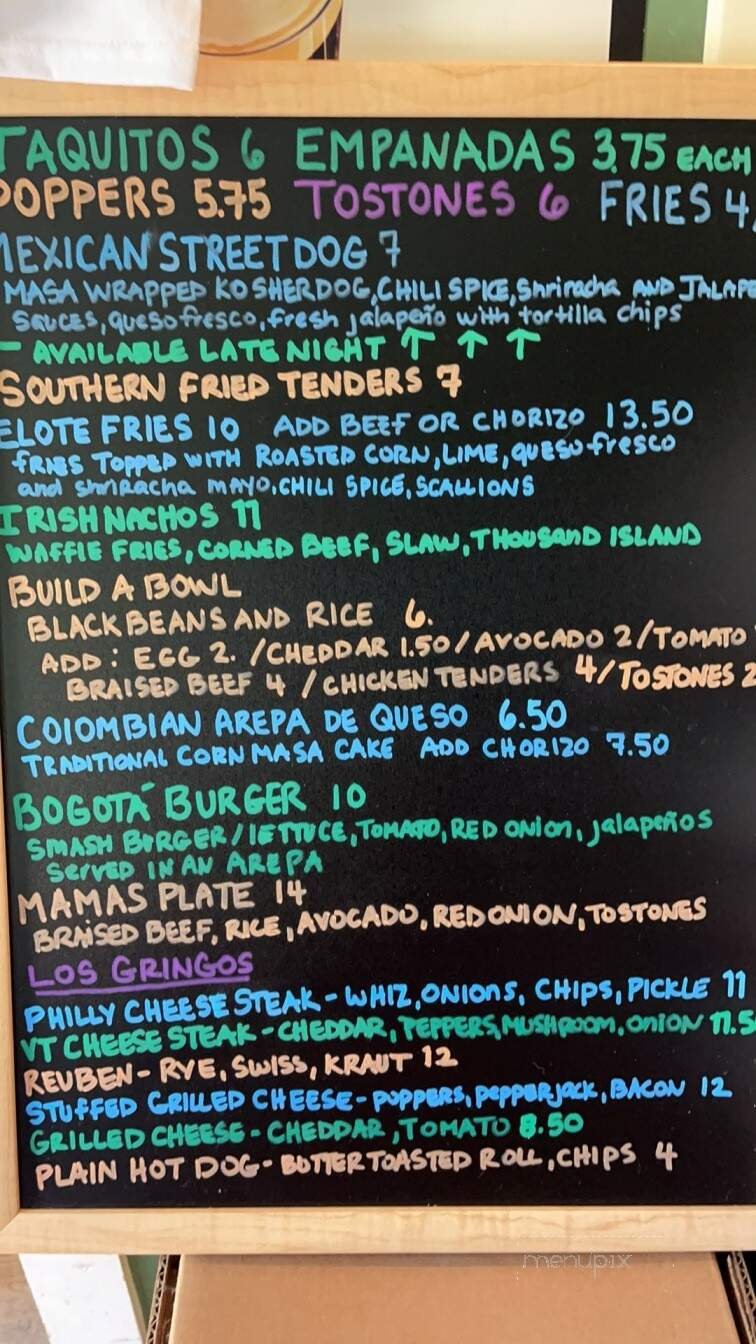 TAQUITOS 6 EMPANADAS 3.75 EACH
POPPERS 5.75 TOSTONES 6 FRIES 4.
MEXICAN STREET DOG 7
MASA WRAPPED KOSHER DOG, CHILI SPICE, Shriracha AND JALAPE
SAUCES, queso fresco, fresh jalapeño with tortilla chips
- AVAILABLE LATE NIGHT ↑ ↑ ↑
SOUTHERN FRIED TENDERS 7
ELOTE FRIES 10 ADD BEEF OR CHORIZO 13.50
FRIES TOPPED WITH ROASTED CORN, LIME, QUESO fresco
and Shriracha MAYO, CHILI SPICE, SCALLIONS
IRISH NACHOS 11
WAFFLE FRIES, CORNED BEEF, SLAW, THOUSAND ISLAND
BUILD A BOWL
BLACK BEANS AND RICE 6.
ADD: EGG 2. / CHEDDAR 1.50 / AVOCADO 2 / TOMATO
BRAISED BEEF 4 / CHICKEN TENDERS 4 / TOSTONES 2
COLOMBIAN AREPA DE QUESO 6.50
TRADITIONAL CORN MASA CAKE ADD CHORIZO 7.50
BOGOTÁ BURGER 10
SMASH BURGER / LETTUCE, TOMATO, RED ONION, jalapeños
SERVED IN AN AREPA
MAMAS PLATE 14
BRAISED BEEF, RICE, AVOCADO, RED ONION, TOSTONES
LOS GRINGOS
PHILLY CHEESE STEAK - WHIZ, ONIONS, CHIPS, PICKLE 11
VT CHEESE STEAK - CHEDDAR, PEPPERS, MUSHROOM, ONION 11.5
REUBEN - RYE, SWISS, KRAUT 12
STUFFED GRILLED CHEESE - POPPERS, PEPPERJACK, BACON 12
GRILLED CHEESE - CHEDDAR, TOMATO 8.50
PLAIN HOT DOG - BUTTER TOASTED ROLL, CHIPS 4
menupix